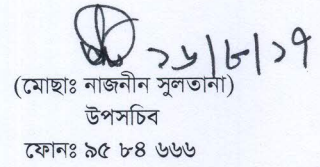 ১৬/৮/১৭
(মোছাঃ নাজনীন সুলতানা)
উপসচিব
ফোনঃ ৯৫ ৮৪ ৬৬৬